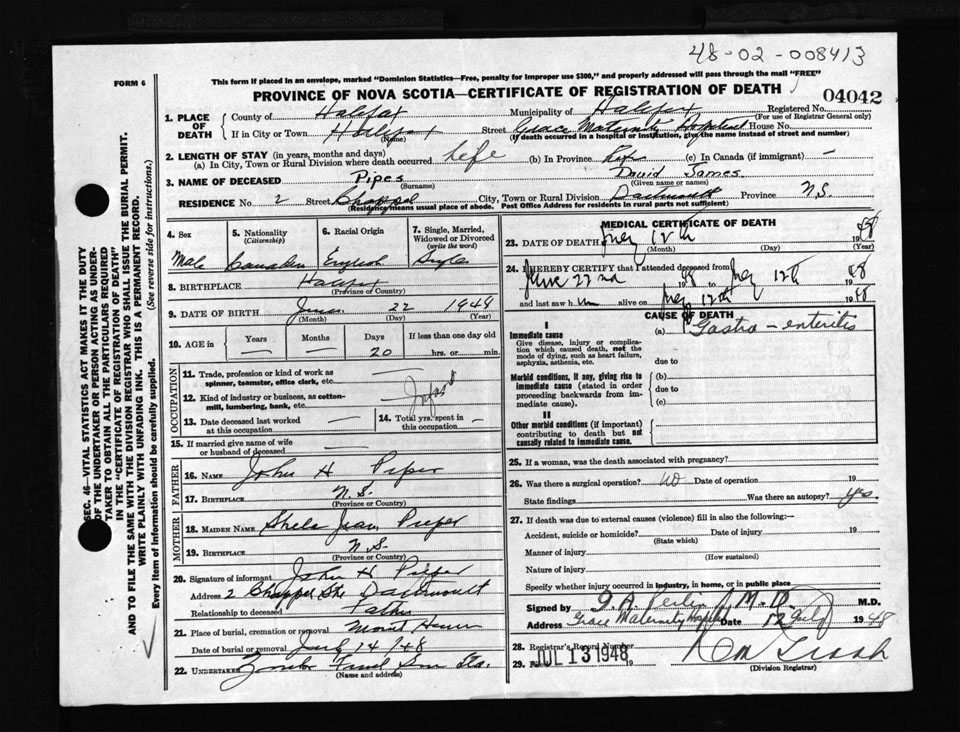 48-02-008413
FORM 6
This form if placed in an envelope, marked "Dominion Statistics—Free, penalty for improper use $300," and properly addressed will pass through the mail "FREE"
PROVINCE OF NOVA SCOTIA—CERTIFICATE OF REGISTRATION OF DEATH
04042
SEC. 46—VITAL STATISTICS ACT MAKES IT THE DUTY
OF THE UNDERTAKER OR PERSON ACTING AS UNDER-
TAKER TO OBTAIN ALL THE PARTICULARS REQUIRED
IN THE "CERTIFICATE OF REGISTRATION OF DEATH"
AND TO FILE THE SAME WITH THE DIVISION REGISTRAR WHO SHALL ISSUE THE BURIAL PERMIT.
WRITE PLAINLY WITH UNFADING INK. THIS IS A PERMANENT RECORD.
Every item of Information should be carefully supplied. (See reverse side for instructions.)
1. PLACE OF DEATH
County of Halifax Municipality of Halifax Registered No.
(For use of Registrar General only)
If in City or Town Halifax Street Grace Maternity Hospital House No.
(Name) (If death occurred in a hospital or institution, give the name instead of street and number)
2. LENGTH OF STAY (in years, months and days)
(a) In City, Town or Rural Division where death occurred life (b) In Province life (c) In Canada (if immigrant) —
3. NAME OF DECEASED Pipes David James
(Surname) (Given name or names)
RESIDENCE No. 2 Street Chappel City, Town or Rural Division Dartmouth Province N.S.
(Residence means usual place of abode. Post Office Address for residents in rural parts not sufficient)
4. Sex Male
5. Nationality (Citizenship) Canadian
6. Racial Origin English
7. Single, Married, Widowed or Divorced (write the word) Single
8. BIRTHPLACE Halifax
(Province or Country)
9. DATE OF BIRTH June 22 1948
(Month) (Day) (Year)
10. AGE in Years — Months — Days 20 If less than one day old hrs. or min.
OCCUPATION
11. Trade, profession or kind of work as spinner, teamster, office clerk, etc.
12. Kind of industry or business, as cotton-mill, lumbering, bank, etc.
13. Date deceased last worked at this occupation —
14. Total yrs. spent in this occupation —
15. If married give name of wife or husband of deceased
FATHER
16. NAME John H
17. BIRTHPLACE N.S.
MOTHER
18. MAIDEN NAME Jean
19. BIRTHPLACE N.S.
(Province or Country)
20. Signature of informant John H
Address 2 Chappel Dartmouth
Relationship to deceased Father
21. Place of burial, cremation or removal Mount
Date of burial or removal July 14/48
22. UNDERTAKER
(Name and address)
MEDICAL CERTIFICATE OF DEATH
23. DATE OF DEATH July 12th 1948
(Month) (Day) (Year)
24. I HEREBY CERTIFY that I attended deceased from
June 22nd 1948 to July 12th 1948
and last saw him alive on July 12th 1948
CAUSE OF DEATH
I
Immediate cause (a) Gastro-enteritis
Give disease, injury or complication which caused death, not the mode of dying, such as heart failure, asphyxia, asthenia, etc.
due to
Morbid conditions, if any, giving rise to immediate cause (stated in order proceeding backwards from immediate cause).
(b)
due to
(c)
II
Other morbid conditions (if important) contributing to death but not causally related to immediate cause.
25. If a woman, was the death associated with pregnancy?
26. Was there a surgical operation? No Date of operation 19
State findings Was there an autopsy? yes
27. If death was due to external causes (violence) fill in also the following:—
Accident, suicide or homicide? Date of injury 19
(State which)
Manner of injury
(How sustained)
Nature of injury
Specify whether injury occurred in industry, in home, or in public place
Signed by M.D. M.D.
Address Grace Maternity Hospital Date 12 July 1948
28. Registrar's Record Number
29. JUL 13 1948
(Division Registrar)